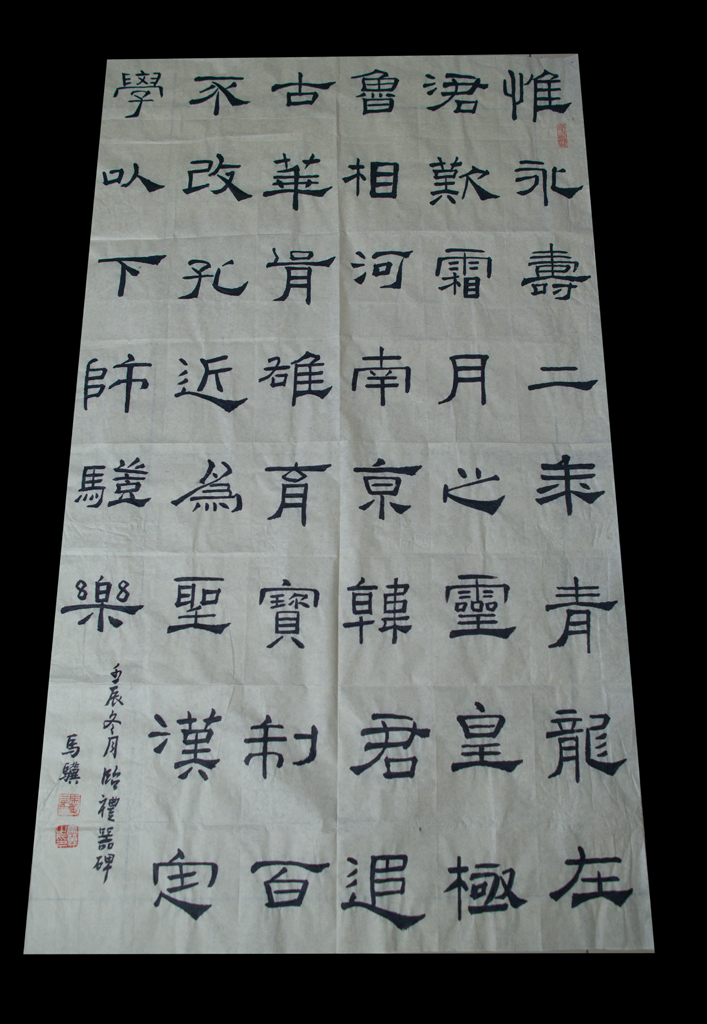 惟永壽二年青龍在
涒歎霜月之靈皇極
魯相河南京韓君追
古華胥雄育寶制百
不改孔近爲聖漢定
學以下師驥樂
壬辰冬月臨禮器碑
馬驥